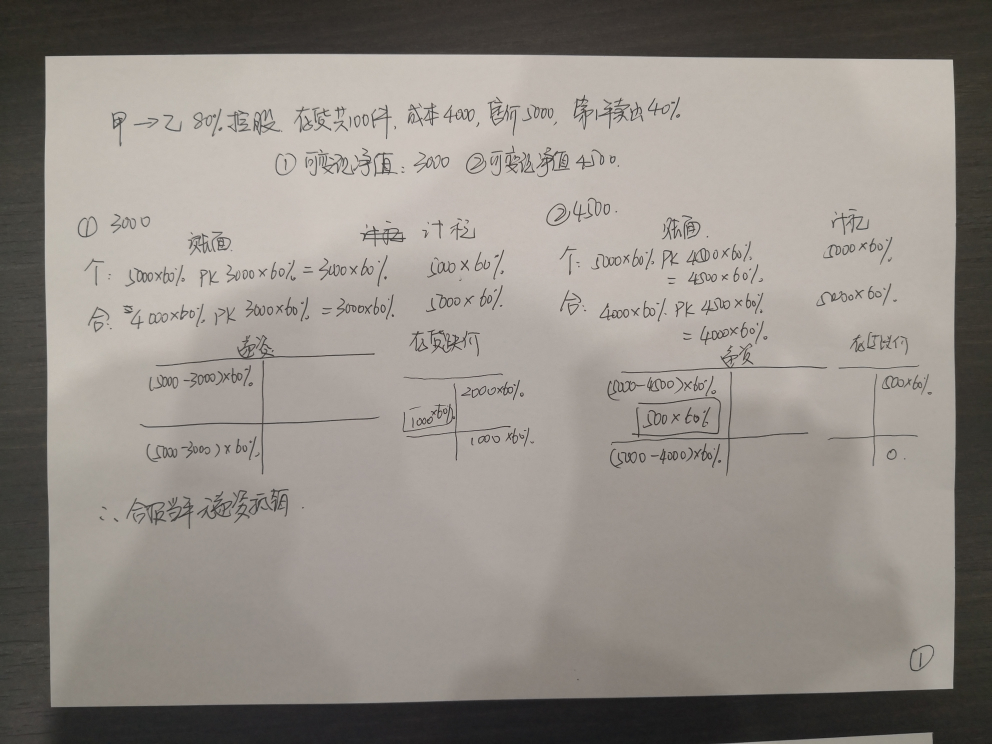 甲→乙 80%控股. 存货共100件, 成本4000, 售价5000, 第1年卖出40%
①可变现净值: 3000 ②可变现净值4500.
① 3000
账面 计税
个: 5000×60% PK 3000×60% = 3000×60% 5000×60%
合: 4000×60% PK 3000×60% = 3000×60% 5000×60%
递资 存货跌价
(5000-3000)×60% 2000×60%
1000×60%
(5000-3000)×60% 1000×60%
∴合报当年无递资抵销.
②4500.
账面 计税
个: 5000×60% PK 4500×60% 5000×60%
= 4500×60%
合: 4000×60% PK 4500×60% 5000×60%
= 4000×60%
递资 存货跌价
(5000-4500)×60% 500×60%
500×60%
(5000-4000)×60% 0.
①